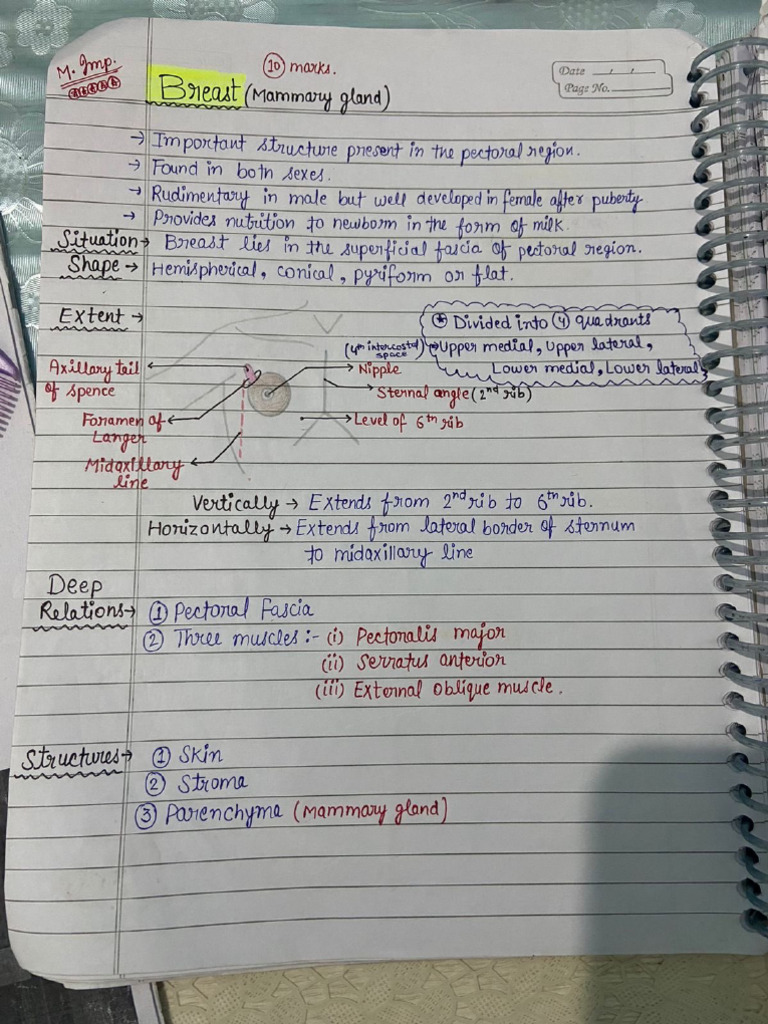 M. Imp.
10 marks.
Date __/__/__
Page No.
Breast (Mammary gland)
→ Important structure present in the pectoral region.
→ Found in both sexes.
→ Rudimentary in male but well developed in female after puberty
→ Provides nutrition to newborn in the form of milk.
Situation → Breast lies in the superficial fascia of pectoral region.
Shape → Hemispherical, conical, pyriform or flat.
Extent →
Divided into 4 quadrants
→ Upper medial, Upper lateral,
Lower medial, Lower lateral
(4th intercostal space)
Nipple
Axillary tail
of spence
Sternal angle (2nd rib)
Foramen of
Langer
Level of 6th rib
Midaxillary
line
Vertically → Extends from 2nd rib to 6th rib.
Horizontally → Extends from lateral border of sternum
to midaxillary line
Deep
Relations → ① Pectoral Fascia
② Three muscles :- (i) Pectoralis major
(ii) Serratus anterior
(iii) External oblique muscle.
Structures → ① Skin
② Stroma
③ Parenchyma (Mammary gland)